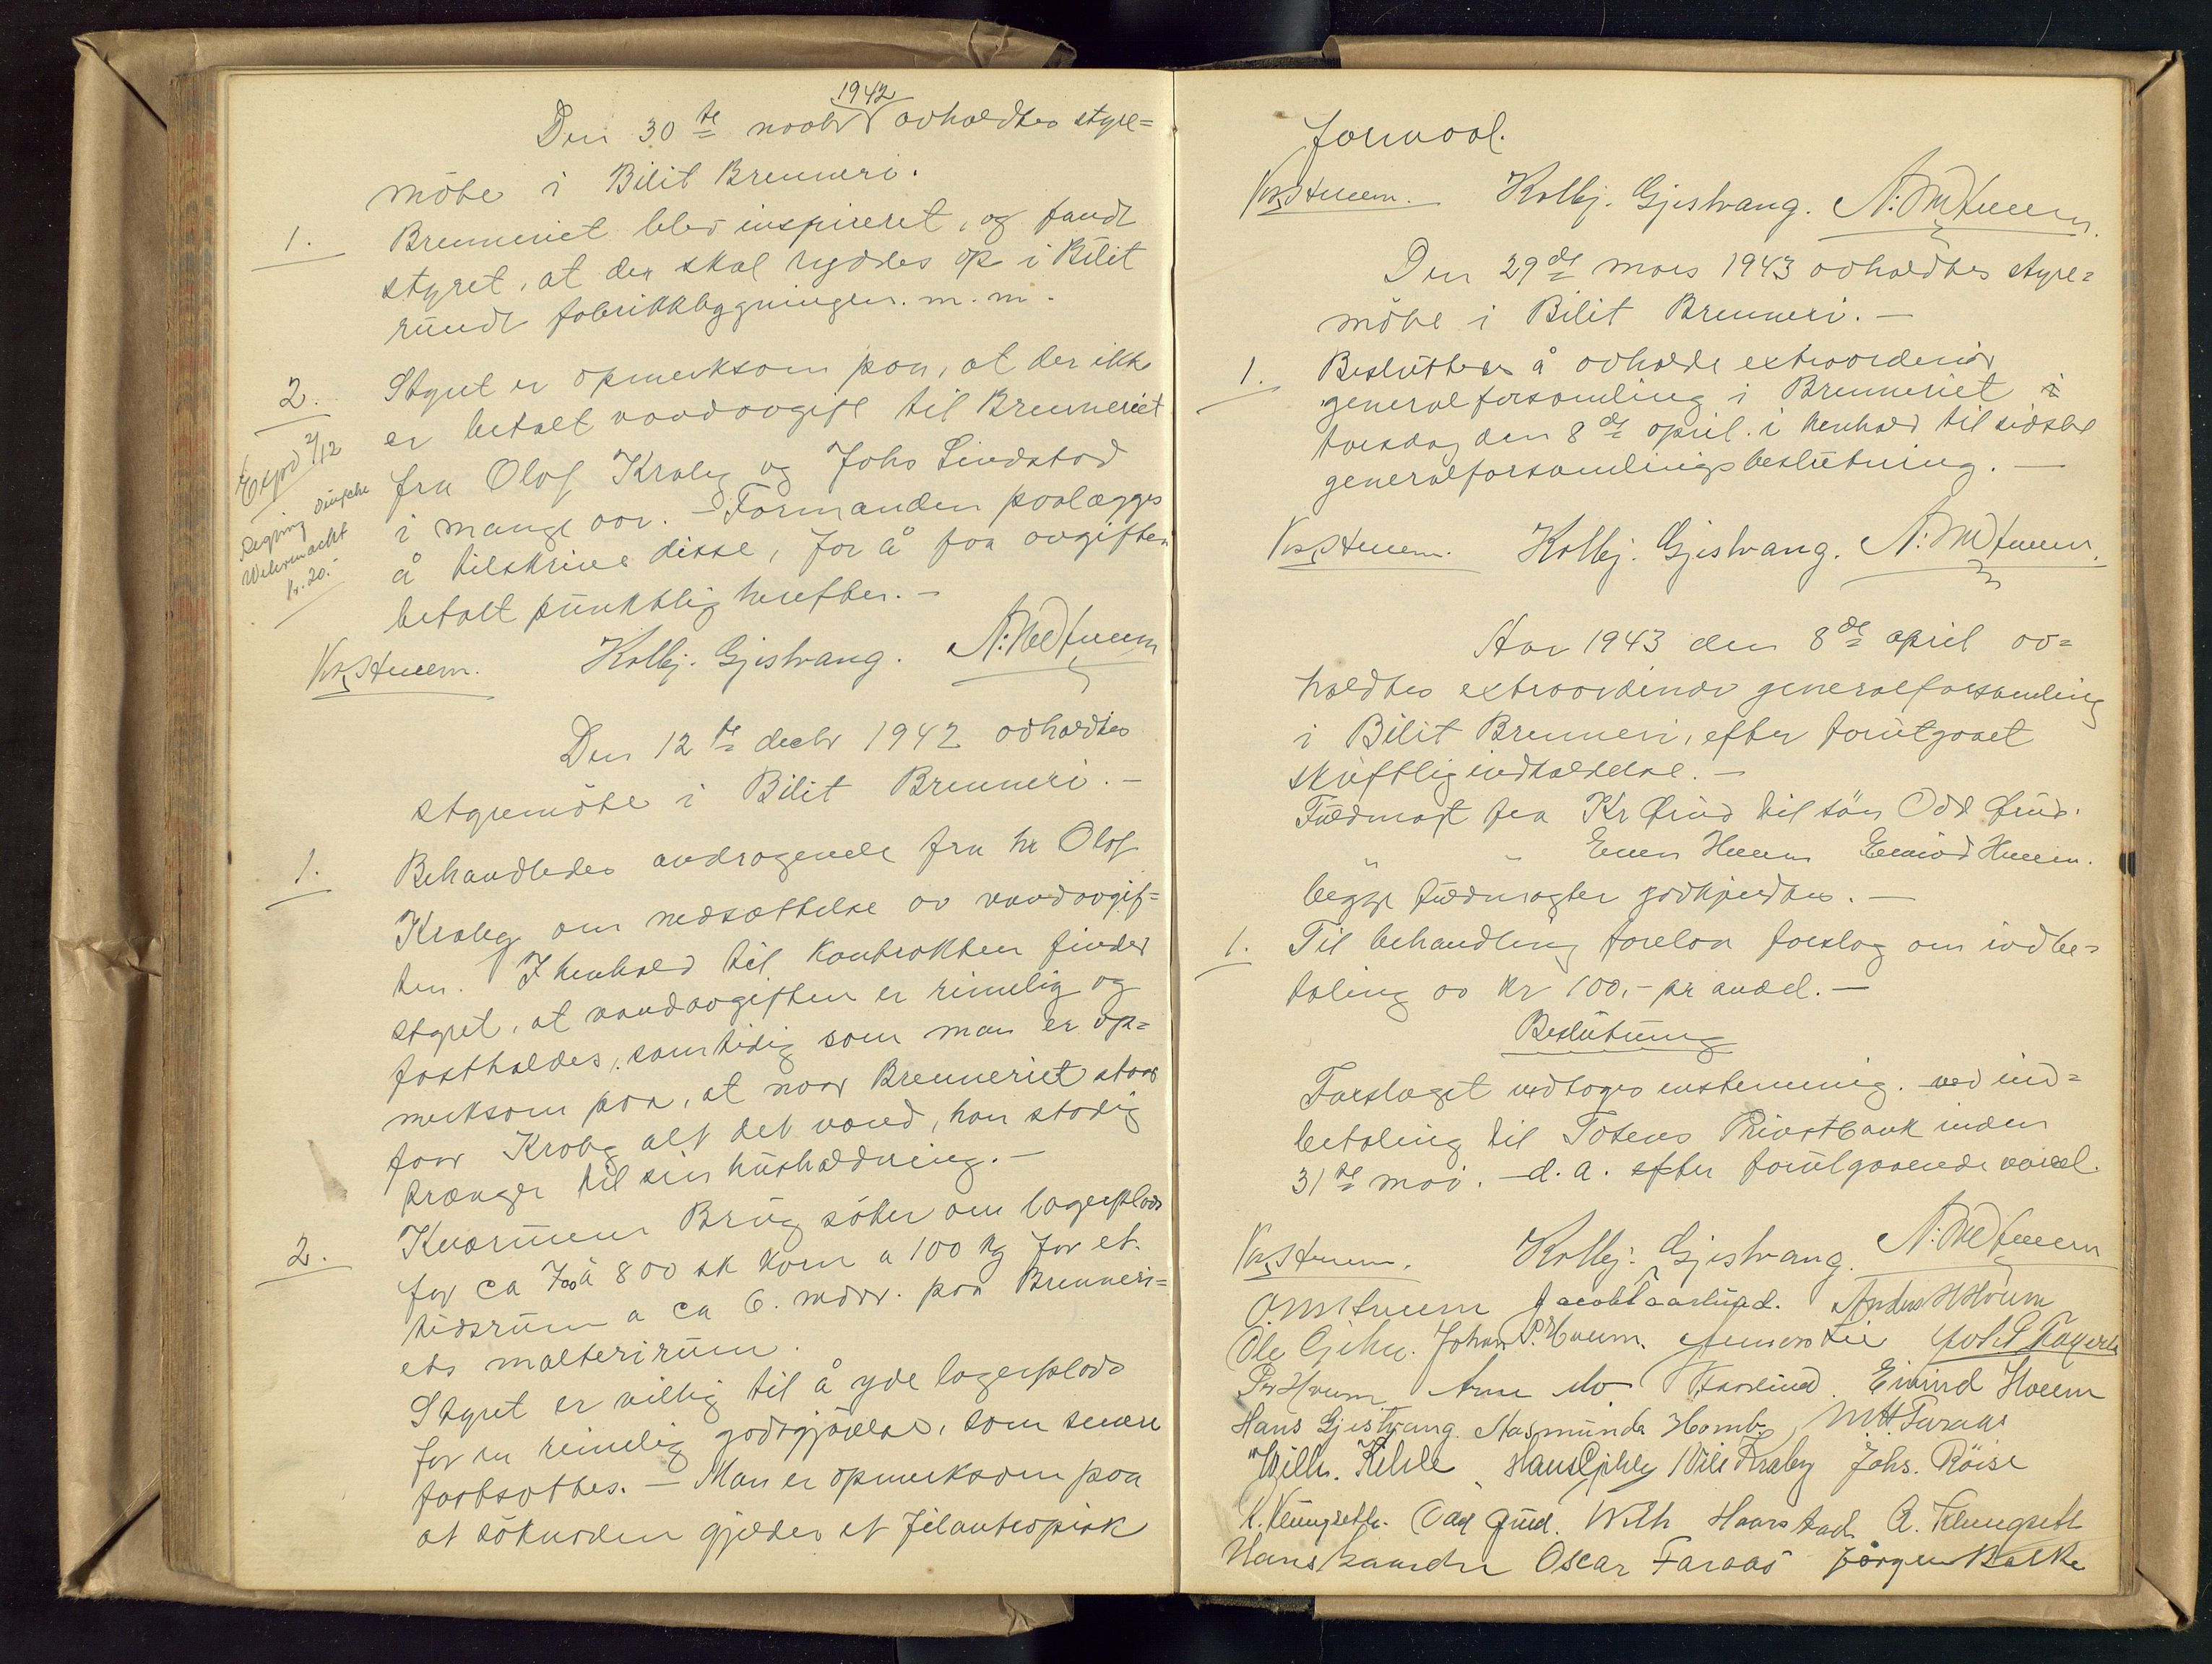 Den 30te novbr 1942 avholdtes styre=
möte i Bilit Brenneri.
1. Brenneriet blev inspiseret, og fandt
styret, at der skal ryddes op i Bilit
rundt fabrikkbygningen. m. m.
2. Styret er opmerksom paa, at der ikke
er betalt vandavgift til Brenneriet
fra Olaf Kraby og Johs Lindstad
i mange aar. - Formanden paalægges
å tilskrive disse, for å faa avgiften
betalt punktlig herefter. -
Expd 2/12
Regning
Wehrmacht
kr. 20.-
Kolbj. Gjestvang.
Den 12te decbr 1942 avholdtes
styremöte i Bilit Brenneri. -
1. Behandledes andragende fra hr Olaf
Kraby om nedsættelse av vandavgif=
ten. I henhold til kontrakten finder
styret, at vandavgiften er rimelig og
fastholdes, samtidig som man er op=
merksom paa, at naar Brenneriet staar
faar Kraby alt det vand, han stadig
trænger til sin husholdning. -
2. Kværnum Brug söker om lagerplads
for ca 700 à 800 sk korn a 100 kg for et
tidsrum a ca 6. mdr. paa Brenneri=
ets malterirum.
Styret er villig til å yde lagerplads
for en rimelig godtgjörelse, som senere
fastsættes. - Man er opmerksom paa
at söknaden gjelder et filantropisk
formaal.
Kolbj. Gjestvang.
Den 29de mars 1943 avholdtes styre=
möte i Bilit Brenneri. -
1. Besluttedes å avholde extraordinær
generalforsamling i Brenneriet
torsdag den 8de april i henhold til sidste
generalforsamlingsbeslutning. -
Kolbj. Gjestvang.
Aar 1943 den 8de april av=
holdtes extraordinær generalforsamling
i Bilit Brenneri, efter forutgaaet
skriftlig indkaldelse. -
Fuldmagt fra Kr Qrud til sön Odd Qrud.
" - Even Hveem Eivind Hveem.
begge fuldmagter godkjendtes. -
1. Til behandling forelaa forslag om indbe=
taling av kr 100,- pr andel. -
Beslutning
Forslaget vedtoges enstemmig. ved ind=
betaling til Totens Privatbank inden
31te mai. - d. a. efter forutgaaende varsel.
Kolbj. Gjestvang.
O. M. Hveem Jacob Paaslund. Anders H Hveem
Ole Gjehn. Johan P. Hveem.
Per Hveem Arne Mo Eivind Hveem
Hans Gjestvang. Aasmund Homb M. H. Faraas
Wilh. Kihle Nils Kraby Johs. Röise
K. Klungseth. Odd Qrud. Wilh Haarstad A. Klungseth
Hans Oscar Faraas Jörgen Balke